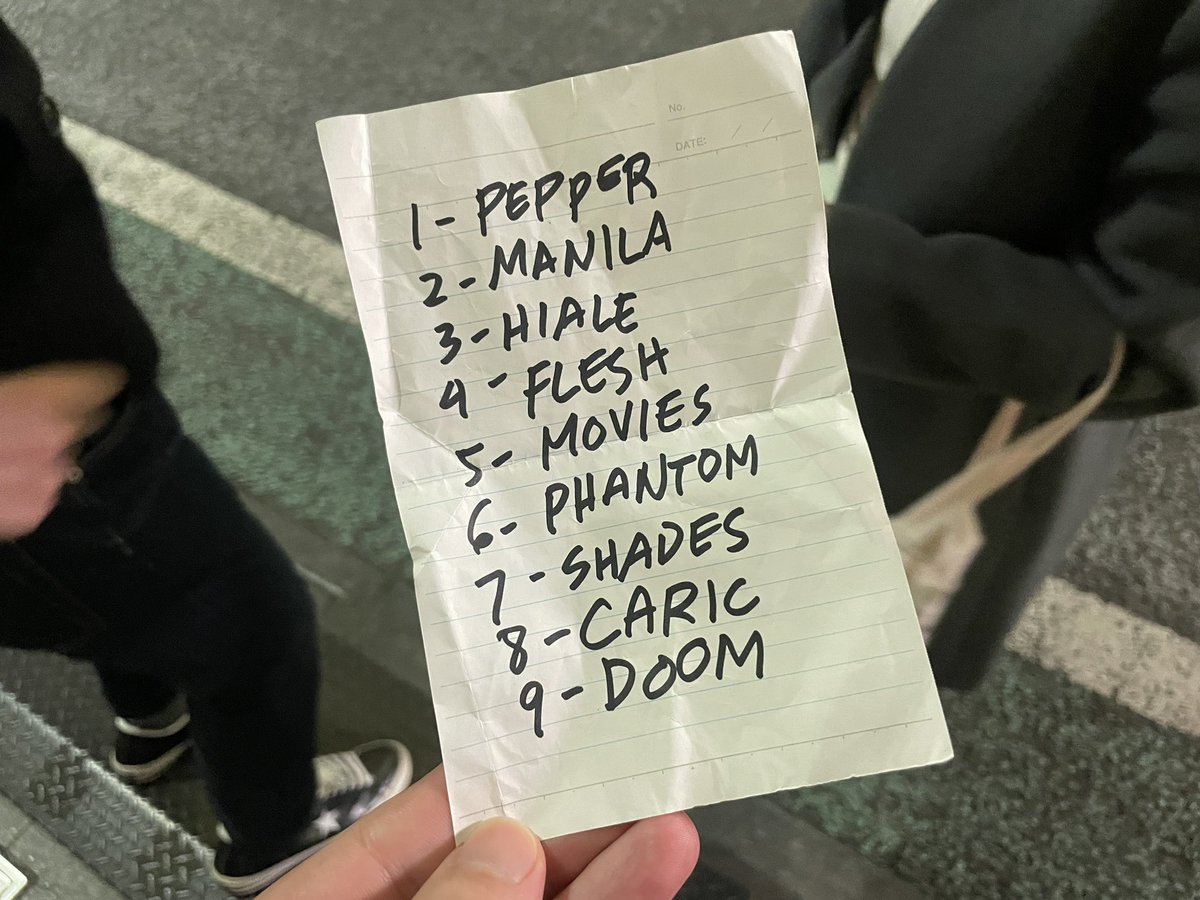 No.
DATE: / /
1- PEPPER
2- MANILA
3- HIALE
4- FLESH
5- MOVIES
6- PHANTOM
7- SHADES
8- CARIC
9- DOOM